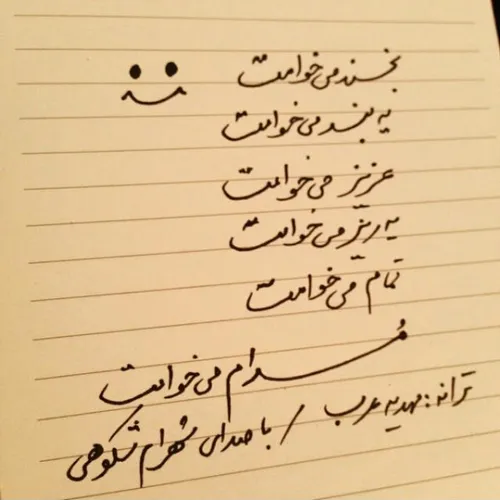 بخند می خوامت
یه بند می خوامت
عزیز می خوامت
یه ریز می خوامت
تمام می خوامت
مُدام می خوامت
ترانه: مهدیه عرب / با صدای شهرام شکوهی